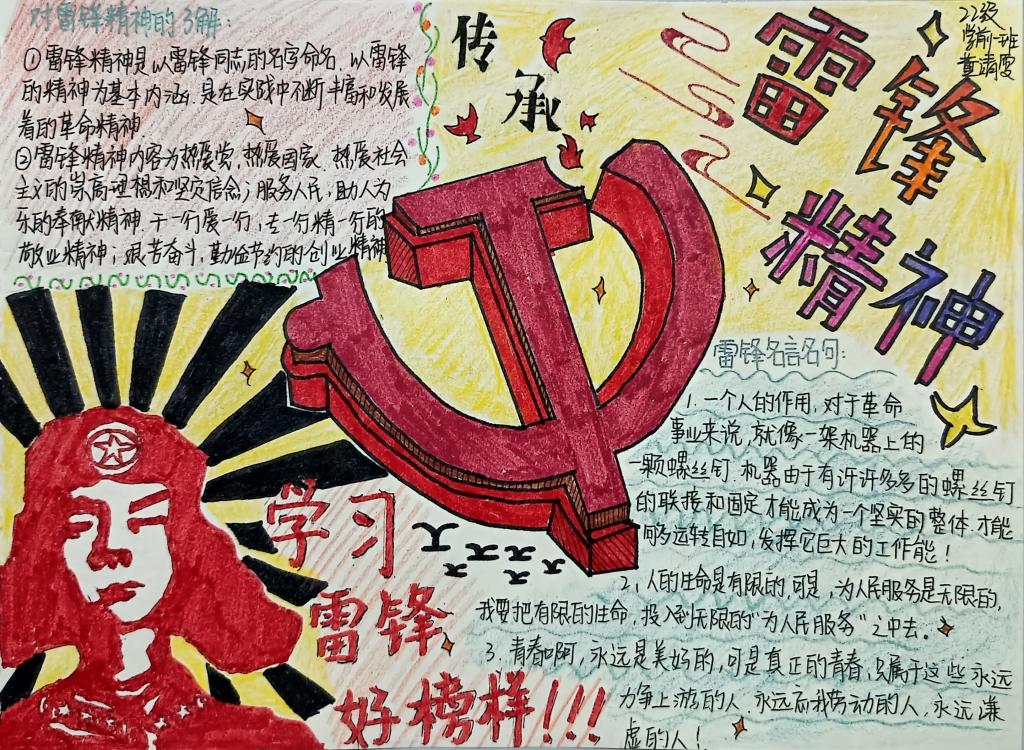 对雷锋精神的了解:
①雷锋精神是以雷锋同志的名字命名、以雷锋
的精神为基本内涵,是在实践中不断丰富和发展
着的革命精神
②雷锋精神内容为热爱党、热爱国家、热爱社会
主义的崇高理想和坚定信念;服务人民,助人为
乐的奉献精神,干一行爱一行,专一行精一行的
敬业精神;艰苦奋斗,勤俭节约的创业精神
传
承
雷
锋
精
神
22级
学前一班
雷锋名言名句:
1.一个人的作用,对于革命
事业来说,就像一架机器上的
一颗螺丝钉.机器由于有许许多多的螺丝钉
的联接和固定,才能成为一个坚实的整体,才能
够运转自如,发挥它巨大的工作能!
2、人的生命是有限的,可是,为人民服务是无限的,
我要把有限的生命,投入到无限的“为人民服务”之中去。
3、青春啊,永远是美好的,可是真正的青春,只属于这些永远
力争上游的人,永远忘我劳动的人,永远谦
虚的人!
学习
雷锋
好榜样!!!